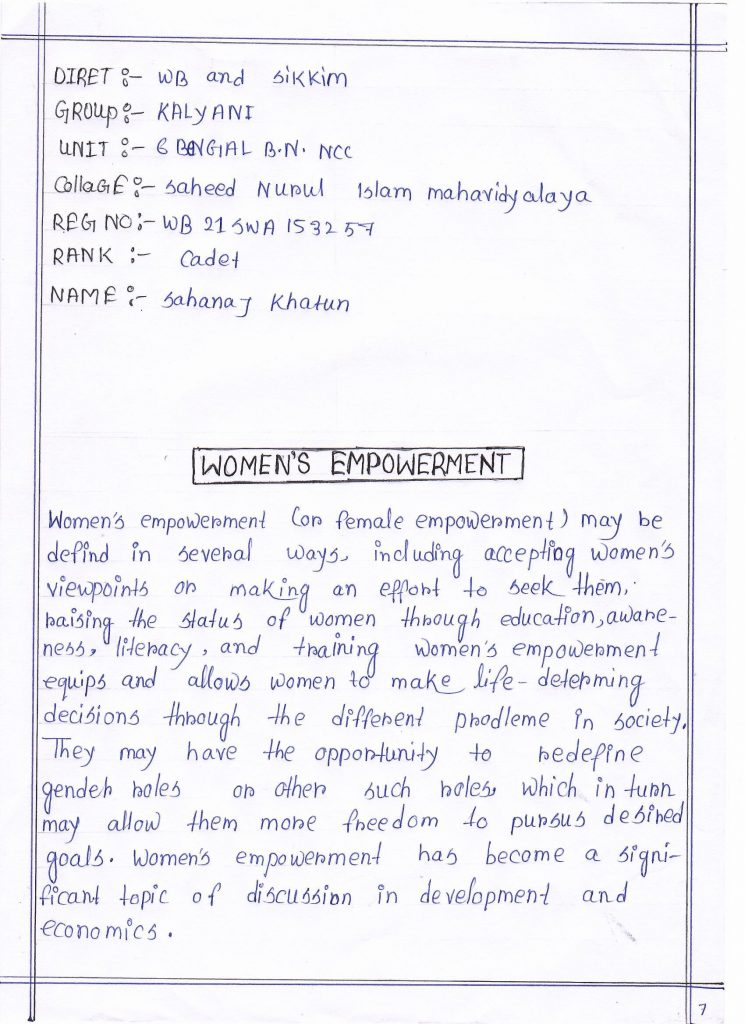 DIRET :- WB and sikkim
GROUP :- KALYANI
UNIT :- 6 BENGIAL B.N. NCC
CollaGE :- saheed Nurul Islam mahavidyalaya
REG NO :- WB 21 SWA 153257
RANK :- Cadet
NAME :- Sahanaj Khatun
WOMEN'S EMPOWERMENT
Women's empowerment (or female empowerment) may be
defind in several ways, including accepting women's
viewpoints or making an effort to seek them,
raising the status of women through education, aware-
ness, literacy, and training women's empowerment
equips and allows women to make life-determing
decisions through the different prodleme in society.
They may have the opportunity to redefine
gender roles or other such roles, which in turn
may allow them more freedom to pursus desired
goals. Women's empowerment has become a signi-
ficant topic of discussion in development and
economics.
7